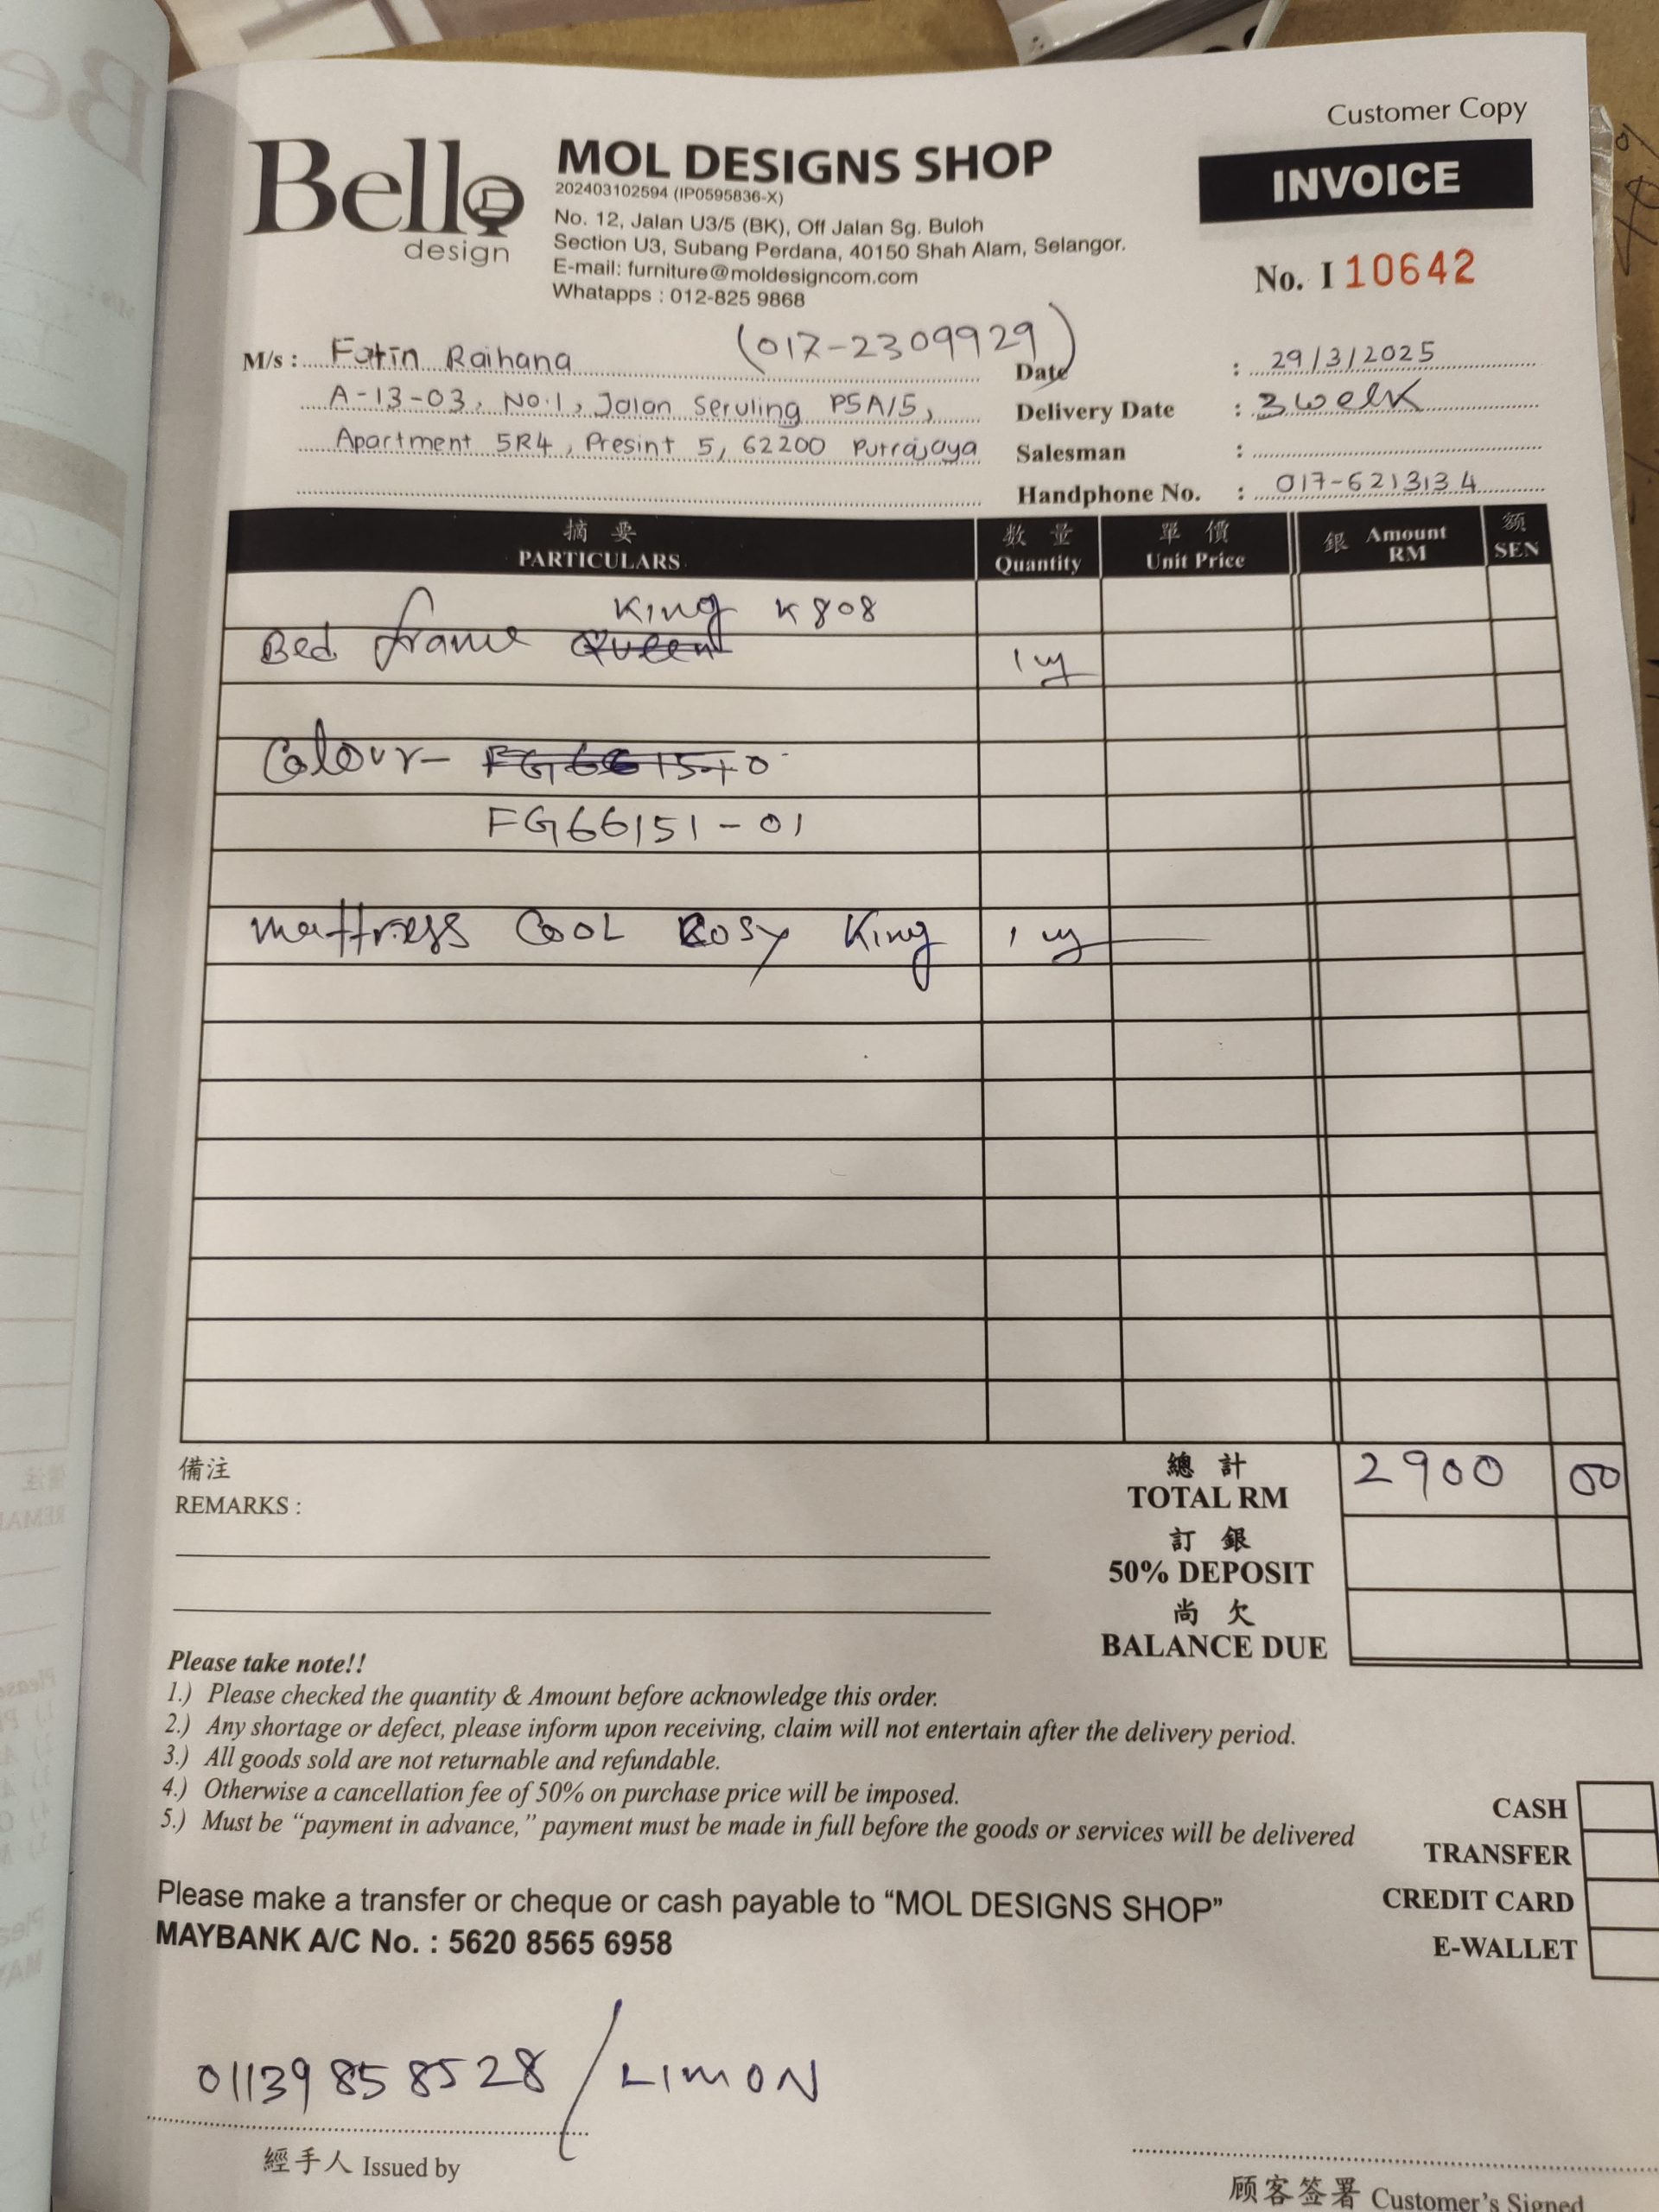 Customer Copy
Bello
design
MOL DESIGNS SHOP
202403102594 (IP0595836-X)
No. 12, Jalan U3/5 (BK), Off Jalan Sg. Buloh
Section U3, Subang Perdana, 40150 Shah Alam, Selangor.
E-mail: furniture@moldesigncom.com
Whatapps : 012-825 9868
INVOICE
No. I 10642
M/s : Fatin Raihana (017-2309929)
A-13-03, No.1, Jalan Seruling P5A/5,
Apartment 5R4, Presint 5, 62200 Putrajaya
Date : 29/3/2025
Delivery Date : 3 week
Salesman :
Handphone No. : 017-6213134
摘要 数量 單價 銀 额
PARTICULARS Quantity Unit Price Amount RM SEN
King K808
Bed frame Queen 1
Colour-
FG66151-01
Mattress COOL COSY King 1
備注
REMARKS :
總計
TOTAL RM 2900 00
訂銀
50% DEPOSIT
尚欠
BALANCE DUE
Please take note!!
1.) Please checked the quantity & Amount before acknowledge this order.
2.) Any shortage or defect, please inform upon receiving, claim will not entertain after the delivery period.
3.) All goods sold are not returnable and refundable.
4.) Otherwise a cancellation fee of 50% on purchase price will be imposed.
5.) Must be “payment in advance,” payment must be made in full before the goods or services will be delivered
CASH
TRANSFER
CREDIT CARD
E-WALLET
Please make a transfer or cheque or cash payable to “MOL DESIGNS SHOP”
MAYBANK A/C No. : 5620 8565 6958
01139858528 / LIMON
經手人 Issued by
顾客签署 Customer's Signed